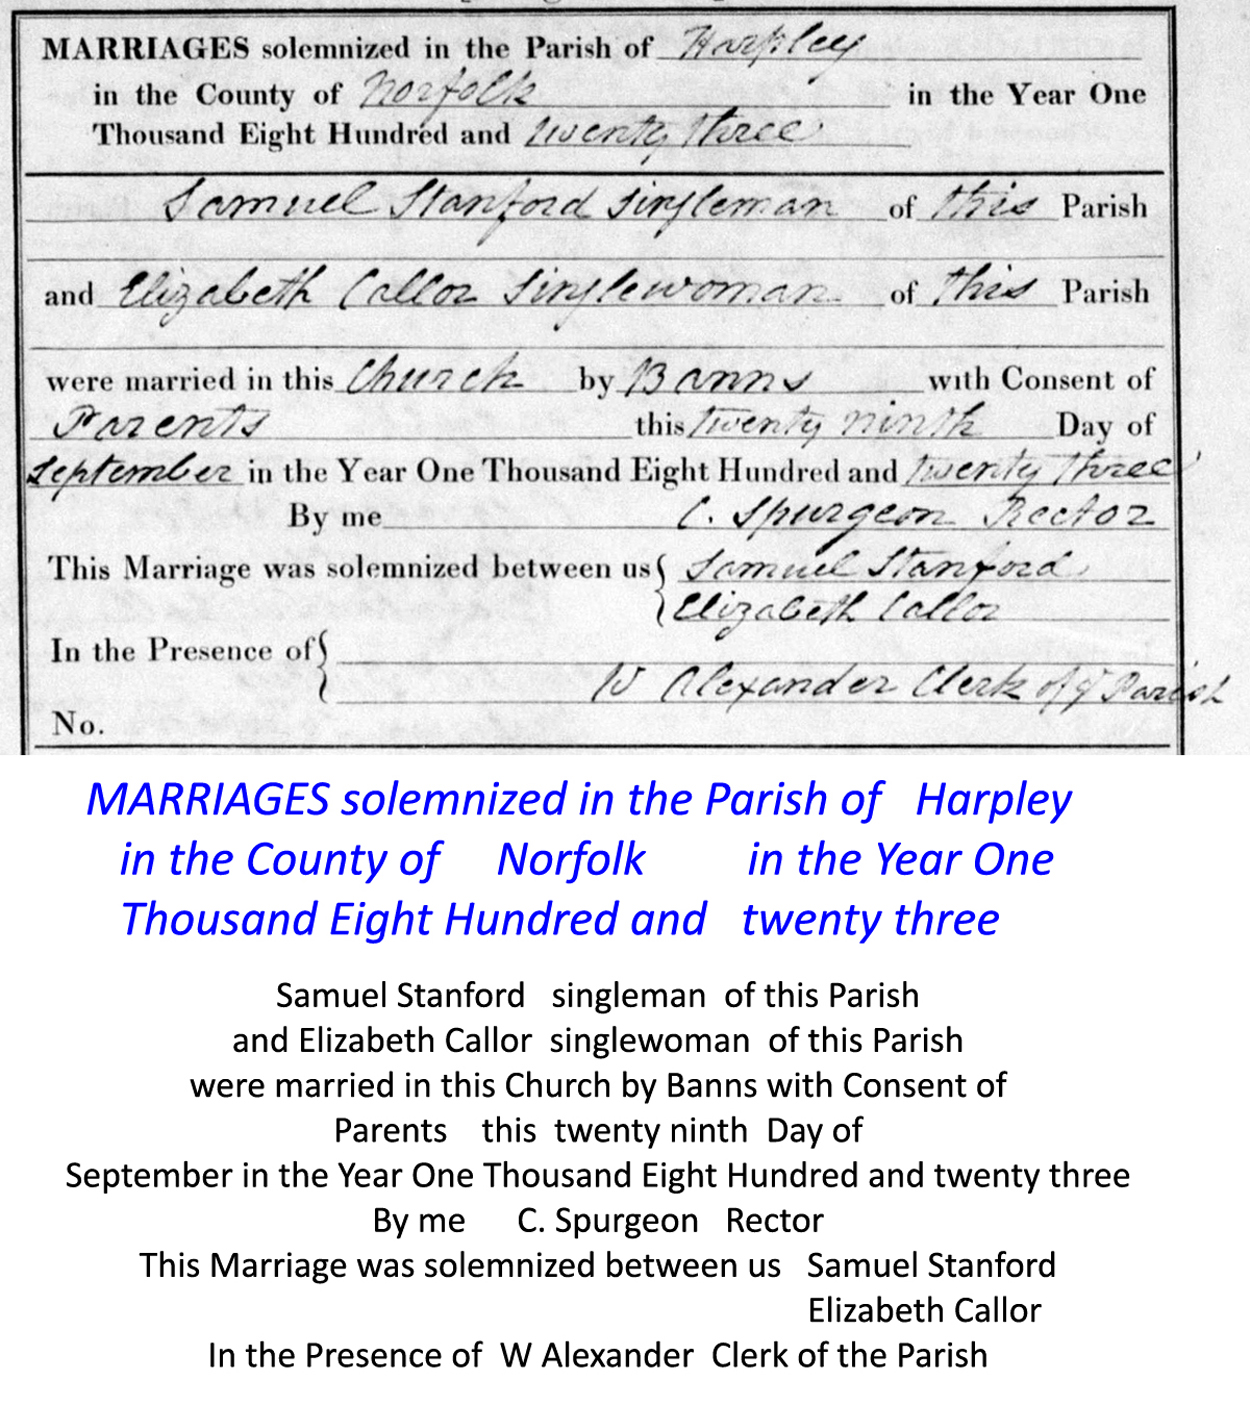 MARRIAGES solemnized in the Parish of Harpley
in the County of Norfolk in the Year One
Thousand Eight Hundred and twenty three
Samuel Stanford singleman of this Parish
and Elizabeth Callor singlewoman of this Parish
were married in this Church by Banns with Consent of
Parents this twenty ninth Day of
September in the Year One Thousand Eight Hundred and twenty three
By me C. Spurgeon Rector
This Marriage was solemnized between us Samuel Stanford
Elizabeth Callor
In the Presence of
W Alexander Clerk of ye Parish
No.
MARRIAGES solemnized in the Parish of Harpley
in the County of Norfolk in the Year One
Thousand Eight Hundred and twenty three
Samuel Stanford singleman of this Parish
and Elizabeth Callor singlewoman of this Parish
were married in this Church by Banns with Consent of
Parents this twenty ninth Day of
September in the Year One Thousand Eight Hundred and twenty three
By me C. Spurgeon Rector
This Marriage was solemnized between us Samuel Stanford
Elizabeth Callor
In the Presence of W Alexander Clerk of the Parish